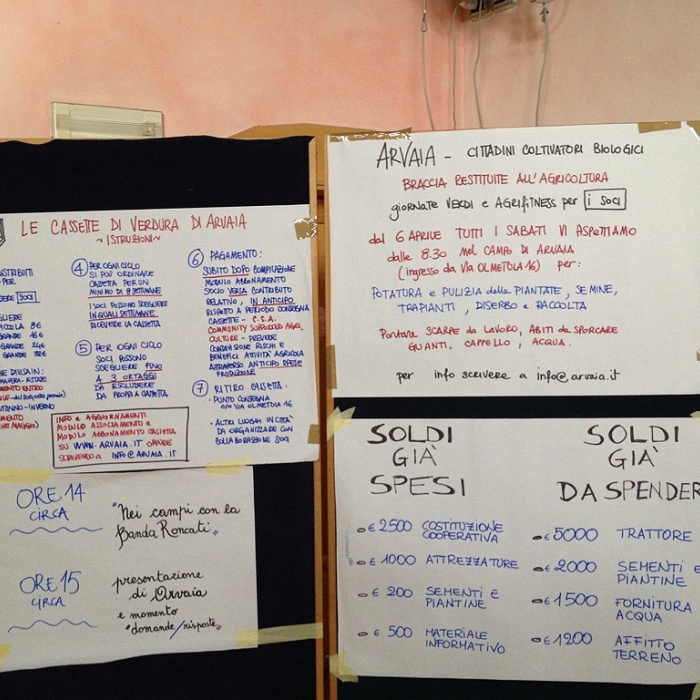 LE CASSETTE DI VERDURA DI ARVAIA
~ISTRUZIONI~
PER
SOCI
8€
GRANDE 16€
GRANDE 24€
GRANDE 32€
④ PER OGNI CICLO
SI PUÒ ORDINARE
CASSETTA PER UN
MINIMO DI 8 SETTIMANE
I SOCI POSSONO SCEGLIERE
IN QUALI SETTIMANE
RICEVERE LA CASSETTA
⑤ PER OGNI CICLO
SOCI POSSONO
SCEGLIERE FINO
A 3 ORTAGGI
DA ESCLUDERE
DA PROPRIA CASSETTA
INFO E AGGIORNAMENTI
MODULO ASSOCIAMENTO E
MODULO ABBONAMENTO CASSETTA
SU WWW.ARVAIA.IT OPPURE
SCRIVENDO A INFO@ARVAIA.IT
⑥ PAGAMENTO:
SUBITO DOPO COMPILAZIONE
MODULO ABBONAMENTO
SOCIO VERSA CONTRIBUTO
RELATIVO, IN ANTICIPO
RISPETTO A PERIODO CONSEGNA
CASSETTE - C.S.A.
COMMUNITY SUPPORTED AGRI
CULTURE - PREVEDE
CONDIVISIONE RISCHI E
BENEFICI ATTIVITÀ AGRICOLA
ATTRAVERSO ANTICIPO SPESE
PRODUZIONE
⑦ RITIRO CASSETTA.
- PUNTO CONSEGNA
C/O VIA OLMETOLA 16
- ALTRI LUOGHI IN CITTÀ
DA ORGANIZZARE CON
COLLABORAZIONE SOCI
ORE 14
CIRCA
"Nei campi con la
Banda Roncati"
ORE 15
CIRCA
presentazione
di Arvaia
e momento
"domande/risposte"
ARVAIA - CITTADINI COLTIVATORI BIOLOGICI
BRACCIA RESTITUITE ALL'AGRICOLTURA
giORNATE VERDI e AGRIFITNESS per i SOCI
dal 6 APRILE TUTTI I SABATI VI ASPETTIAMO
dalle 8:30 nel CAMPO DI ARVAIA
(ingresso da VIA OLMETOLA 16) per:
POTATURA e PULIZIA delle PIANTATE, SEMINE,
TRAPIANTI, DISERBO e RACCOLTA
Portare SCARPE da LAVORO, ABITI da SPORCARE
GUANTI, CAPPELLO, ACQUA.
per info scrivere a info@arvaia.it
SOLDI
GIÀ
SPESI
€ 2500 COSTITUZIONE
COOPERATIVA
€ 1000 ATTREZZATURE
€ 200 SEMENTI E
PIANTINE
€ 500 MATERIALE
INFORMATIVO
SOLDI
GIÀ
DA SPENDER
€ 5000 TRATTORE
€ 2000 SEMENTI E
PIANTINE
€ 1500 FORNITURA
ACQUA
€ 1200 AFFITTO
TERRENO